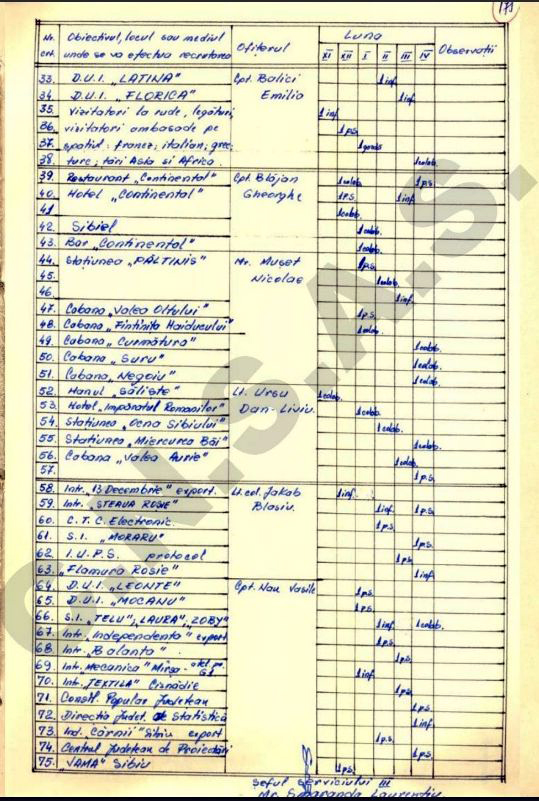 171
Nr. crt. Obiectivul, locul sau mediul unde se va efectua recrutarea Ofițerul Luna XI XII I II III IV Observații
33. D.U.I. „LATINA" Cpt. Balici 1 inf.
34. D.U.I. „FLORICA" Emilia 1 inf.
35. Vizitatori la rude, legături, 1 inf.
36. vizitatori ambasade pe 1 p.s.
37. spațiul: francez; italian; grec 1 gazdă
38. turc; țări Asia si Africa. 1 colab.
39. Restaurant „Continental" Cpt. Blăjan 1 colab. 1 p.s.
40. Hotel „Continental" Gheorghe 1 p.s. 1 inf.
41 1 colab.
42. Sibiel 1 colab.
43. Bar „Continental" 1 colab.
44. Stațiunea „PĂLTINIS" Mr. Mușet 1 p.s.
45. Nicolae 1 colab.
46. 1 inf.
47. Cabana „Valea Oltului" 1 p.s.
48. Cabana „Fîntînița Haiducului" 1 colab.
49. Cabana „Curmătura" 1 colab.
50. Cabana „Suru" 1 colab.
51. Cabana „Negoiu" 1 colab.
52. Hanul „Săliște" Lt. Ursu 1 colab.
53. Hotel „Împăratul Romanilor" Dan-Liviu. 1 colab.
54. Stațiunea „Ocna Sibiului" 1 colab.
55. Stațiunea „Miercurea Băi" 1 colab.
56. Cabana „Valea Aurie" 1 colab.
57. 1 p.s.
58. Intr. „13 Decembrie" export. Lt. col. Jakab 1 inf.
59. Intr. „STEAUA ROȘIE" Blasiu. 1 inf. 1 p.s.
60. C.T.C. Electronic. 1 p.s.
61. S.I. „MORARU" 1 p.s.
62. I.U.P.S. protocol 1 p.s.
63. „Flamura Roșie" 1 inf.
64. D.U.I. „LEONTE" Cpt. Nan Vasile 1 p.s.
65. D.U.I. „MOCANU" 1 p.s.
66. S.I. „TELU", „LAURA", „ZOBY" 1 inf. 1 colab.
67. Intr. „Independența" export 1 p.s.
68. Intr. „Balanța". 1 p.s.
69. Intr. „Mecanica" Mîrșa - 1 inf.
70. Intr. „TEXTILA" Cisnădie 1 p.s.
71. Consil. Popular Județean 1 p.s.
72. Direcția Județ. de Statistică 1 inf.
73. Ind. „Cărnii" Sibiu export 1 p.s.
74. Centrul Județean de Proiectări 1 p.s.
75. „VAMA" Sibiu 1 p.s.
Șeful serviciului III
Mr. Smaranda Laurențiu
C.N.S.A.S.